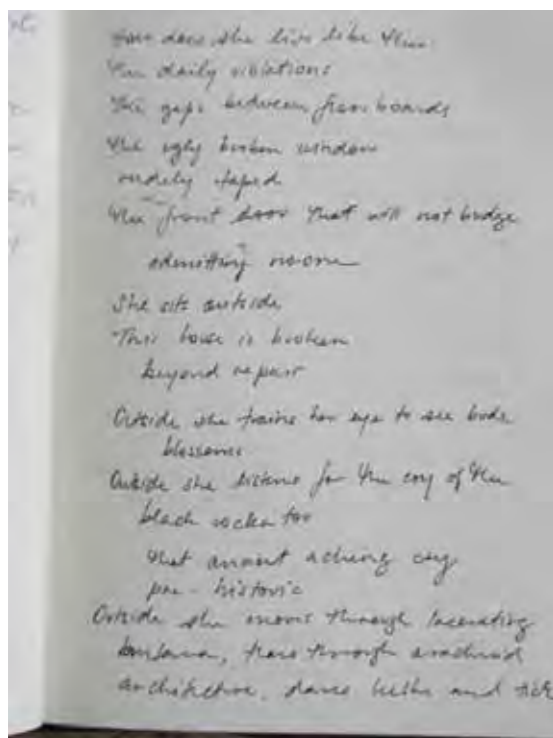 How does she live like this
The daily violations
The gaps between floor boards
The ugly broken window
rudely taped
The front door that will not budge
admitting no one
She sits outside
This house is broken
beyond repair
Outside she trains her eye to see buds
blossoms
Outside she listens for the cry of the
black cockatoo
that ancient aching cry
pre-historic
Outside she moves through lacerating
lantana, tears through arachnid
architecture, and tick